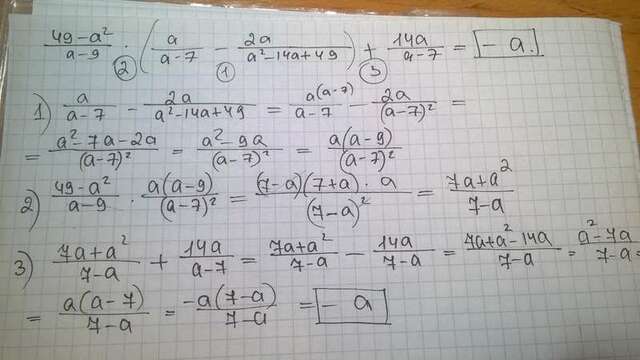 (49-a²)/(a-9) · (a/(a-7) - 2a/(a²-14a+49)) + 14a/(a-7) = -a.
② ① ③
1) a/(a-7) - 2a/(a²-14a+49) = a(a-7)/(a-7) - 2a/(a-7)² =
= (a²-7a-2a)/(a-7)² = (a²-9a)/(a-7)² = a(a-9)/(a-7)²
2) (49-a²)/(a-9) · a(a-9)/(a-7)² = (7-a)(7+a)·a/(7-a)² = (7a+a²)/(7-a)
3) (7a+a²)/(7-a) + 14a/(a-7) = (7a+a²)/(7-a) - 14a/(7-a) = (7a+a²-14a)/(7-a) = (a²-7a)/(7-a) =
= a(a-7)/(7-a) = -a(7-a)/(7-a) = -a